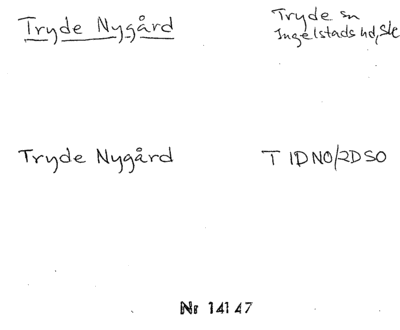 Tryde Nygård
Tryde sn
Ingelstads hd, Sk
Tryde Nygård
T 1DNO/2DSO
Nr 14147